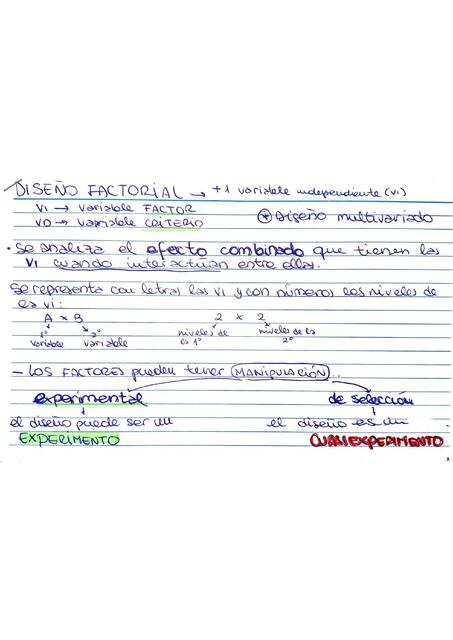 DISEÑO FACTORIAL → +1 variable independiente (VI)
VI → Variable FACTOR
VD → Variable CRITERIO
* Diseño multivariado
• Se analiza el efecto combinado que tienen las
VI cuando interactúan entre ellas.
Se representa con letras las VI y con números los niveles de
las VI:
A × B    2 × 2
1º    2º    niveles de    niveles de la
variable    variable    la 1º    2º
- LOS FACTORES pueden tener MANIPULACIÓN...
experimental    de selección
↓    ↓
el diseño puede ser un    el diseño es un
EXPERIMENTO    CUASIEXPERIMENTO